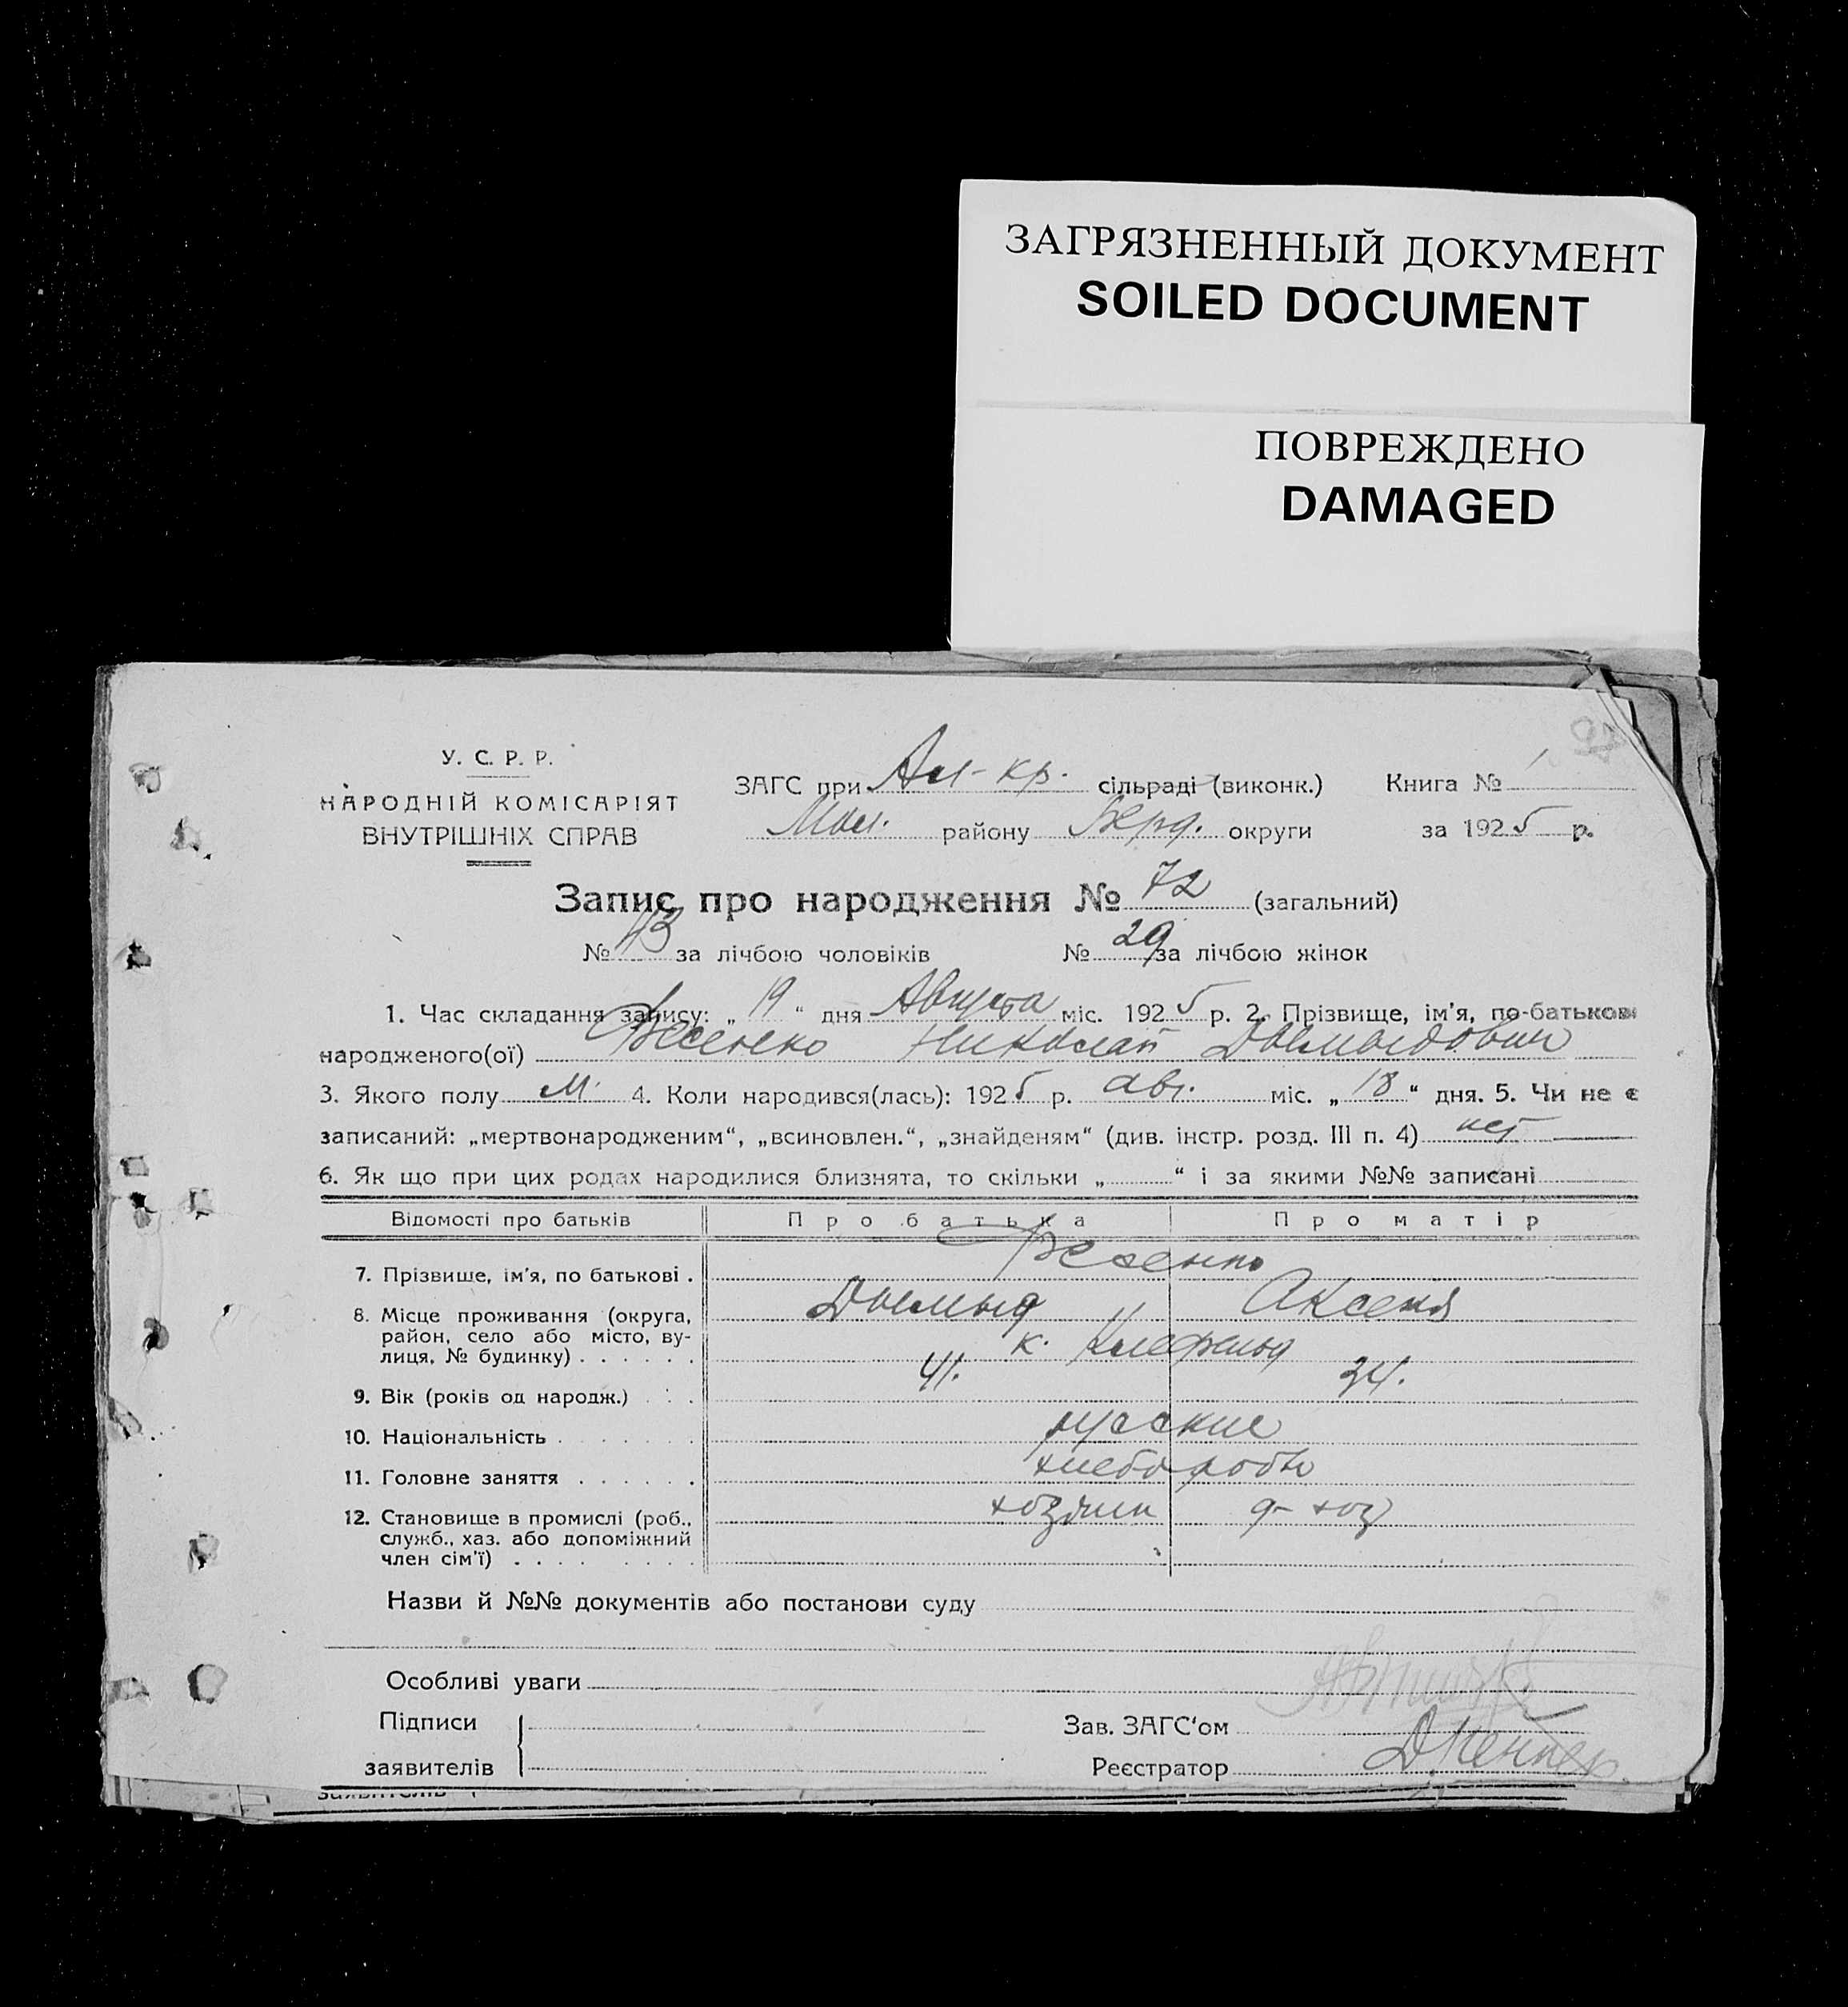 ЗАГРЯЗНЕННЫЙ ДОКУМЕНТ
SOILED DOCUMENT
ПОВРЕЖДЕНО
DAMAGED
У. С. Р. Р.
НАРОДНІЙ КОМІСАРІЯТ
ВНУТРІШНІХ СПРАВ
ЗАГС при Ал-кр. сільраді (виконк.) Книга № 1
Мол. району Берд. округи за 1925 р.
Запис про народження № 72 (загальний)
№ 43 за лічбою чоловіків № 29 за лічбою жінок
1. Час складання запису: „ 19 “ дня Августа міс. 1925 р. 2. Прізвище, ім'я, по-батькові
народженого(ої) Николай
3. Якого полу м. 4. Коли народився(лась): 1925 р. авг. міс. „ 18 “ дня. 5. Чи не є
записаний: „мертвонародженим“, „всиновлен.“, „знайденям“ (див. інстр. розд. III п. 4) нет
6. Як що при цих родах народилися близнята, то скільки „ “ і за якими №№ записані
Відомості про батьків Про батька Про матір
7. Прізвище, ім'я, по батькові .
8. Місце проживання (округа, Аксеня
район, село або місто, ву-
лиця, № будинку) . . . . . . к.
9. Вік (років од народж.) . . . 41. 34.
10. Національність . . . . . . . русские
11. Головне заняття . . . . . . хлеборобы
12. Становище в промислі (роб., хозяин д- хоз
служб., хаз. або допоміжний
член сім'ї) . . . . . . . . .
Назви й №№ документів або постанови суду
Особливі уваги
Підписи
Зав. ЗАГС'ом
заявителів
Реєстратор